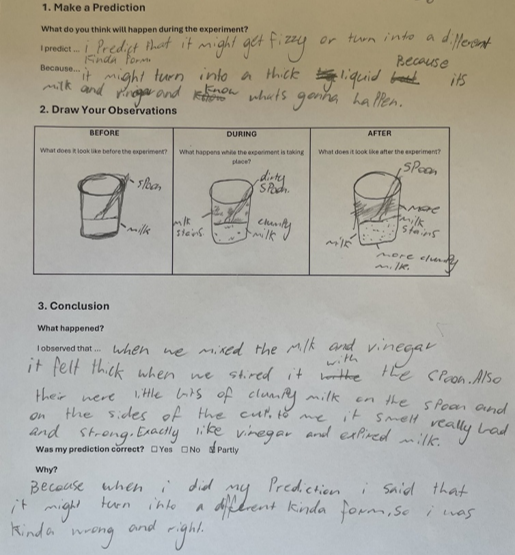 1. Make a Prediction
What do you think will happen during the experiment?
I predict... i Predict that it might get fizzy or turn into a different
Kinda form Because
Because... it might turn into a thick liquid its
milk and vinegar and know whats gonna happen.
2. Draw Your Observations
BEFORE DURING AFTER
What does it look like before the experiment? What happens while the experiment is taking place? What does it look like after the experiment?
Spoon
milk
dirty
Spoon.
milk
stains
clumpy
milk
SPoon
more
milk
stains
milk
more clumpy
milk.
3. Conclusion
What happened?
I observed that... when we mixed the milk and vinegar
it felt thick when we stired it with the spoon. Also
their were little bits of clumpy milk on the spoon and
on the sides of the cup, to me it smelt really bad
and strong. Exactly like vinegar and expired milk.
Was my prediction correct? ☐Yes ☐No ☑Partly
Why?
Because when i did my Prediction i said that
it might turn into a different kinda form, so i was
Kinda wrong and right.